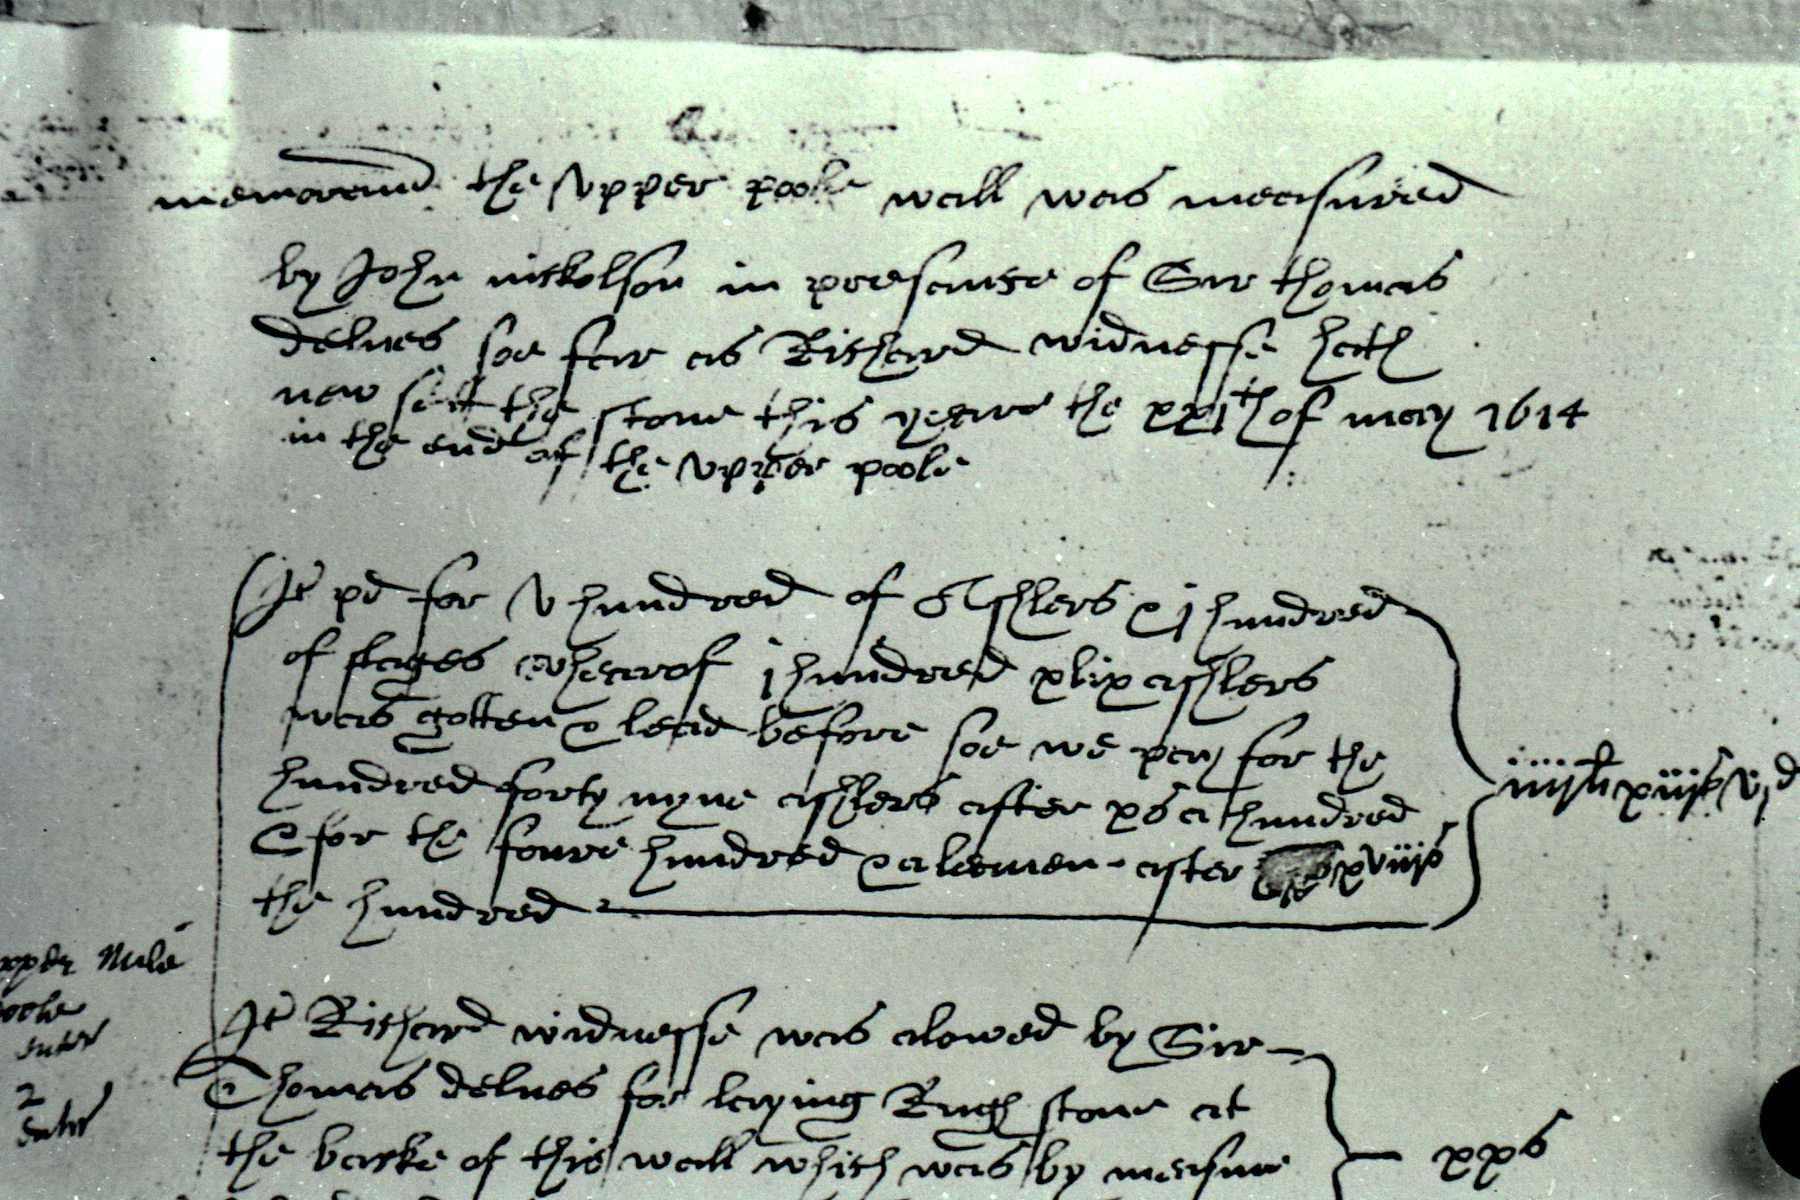 memorand the vpper poole wall was measured
by John nickolson in presence of Sir thomas
delves soe farr as Richard widnesse hath
new sett the stone this yeare the xxjth of may 1614
in the end of the vpper poole
It pd for v hundred of Ashlers & j hundred
of flages wherof j hundred xlix ashlers
was gotten & lead before soe we pay for the
hundred forty nyne ashlers after xs a hundred
& for the foure hundred & a leaven after xviijs
the hundred
iiijli xiijs vjd
It Richard widnesse was alowed by Sir
Thomas delves for laying Rugh stone at
the backe of this wall which was by measure
xxs
vpper Mile
poole
enter
2
entr